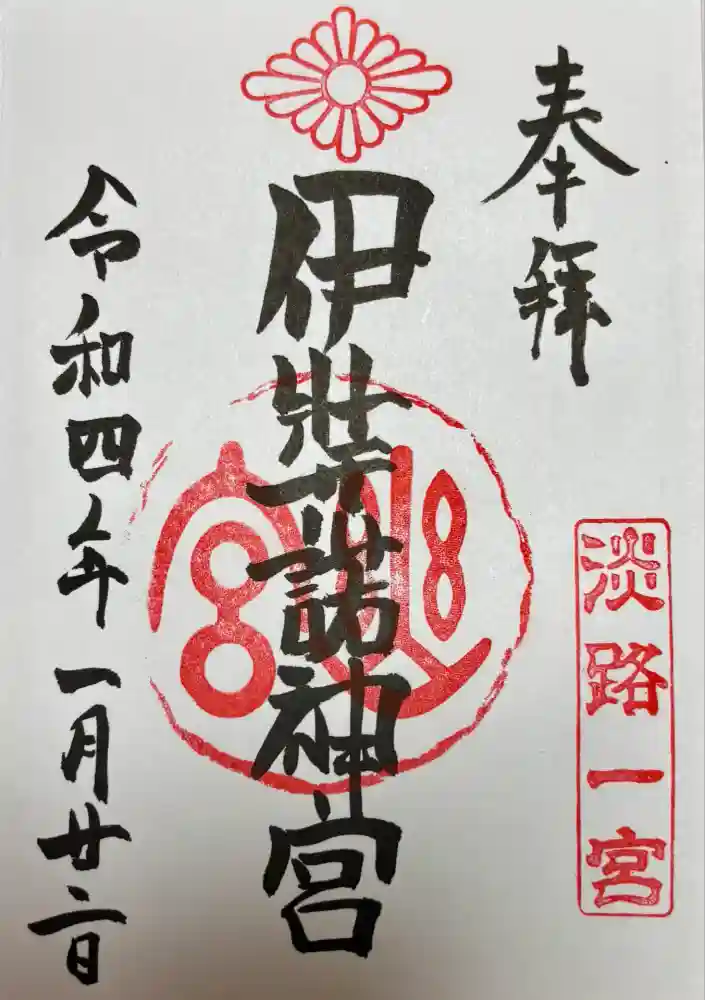 奉拝
淡路一宮
伊弉諾神宮
令和四年一月廿二日